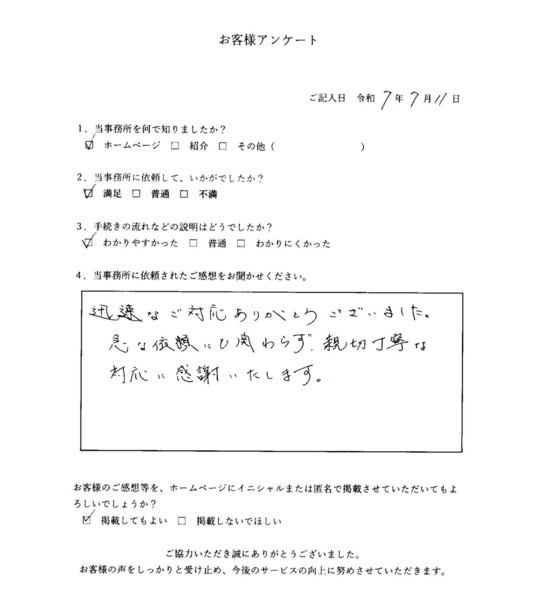 お客様アンケート
ご記入日 令和 7年 7月 11日
1．当事務所を何で知りましたか？
☑ ホームページ □ 紹介 □ その他（ ）
2．当事務所に依頼して、いかがでしたか？
☑ 満足 □ 普通 □ 不満
3．手続きの流れなどの説明はどうでしたか？
☑ わかりやすかった □ 普通 □ わかりにくかった
4．当事務所に依頼されたご感想をお聞かせください。
迅速なご対応ありがとうございました。
急な依頼にも関わらず、親切丁寧な
対応に感謝いたします。
お客様のご感想等を、ホームページにイニシャルまたは匿名で掲載させていただいてもよ
ろしいでしょうか？
☑ 掲載してもよい □ 掲載しないでほしい
ご協力いただき誠にありがとうございました。
お客様の声をしっかりと受け止め、今後のサービスの向上に努めさせていただきます。